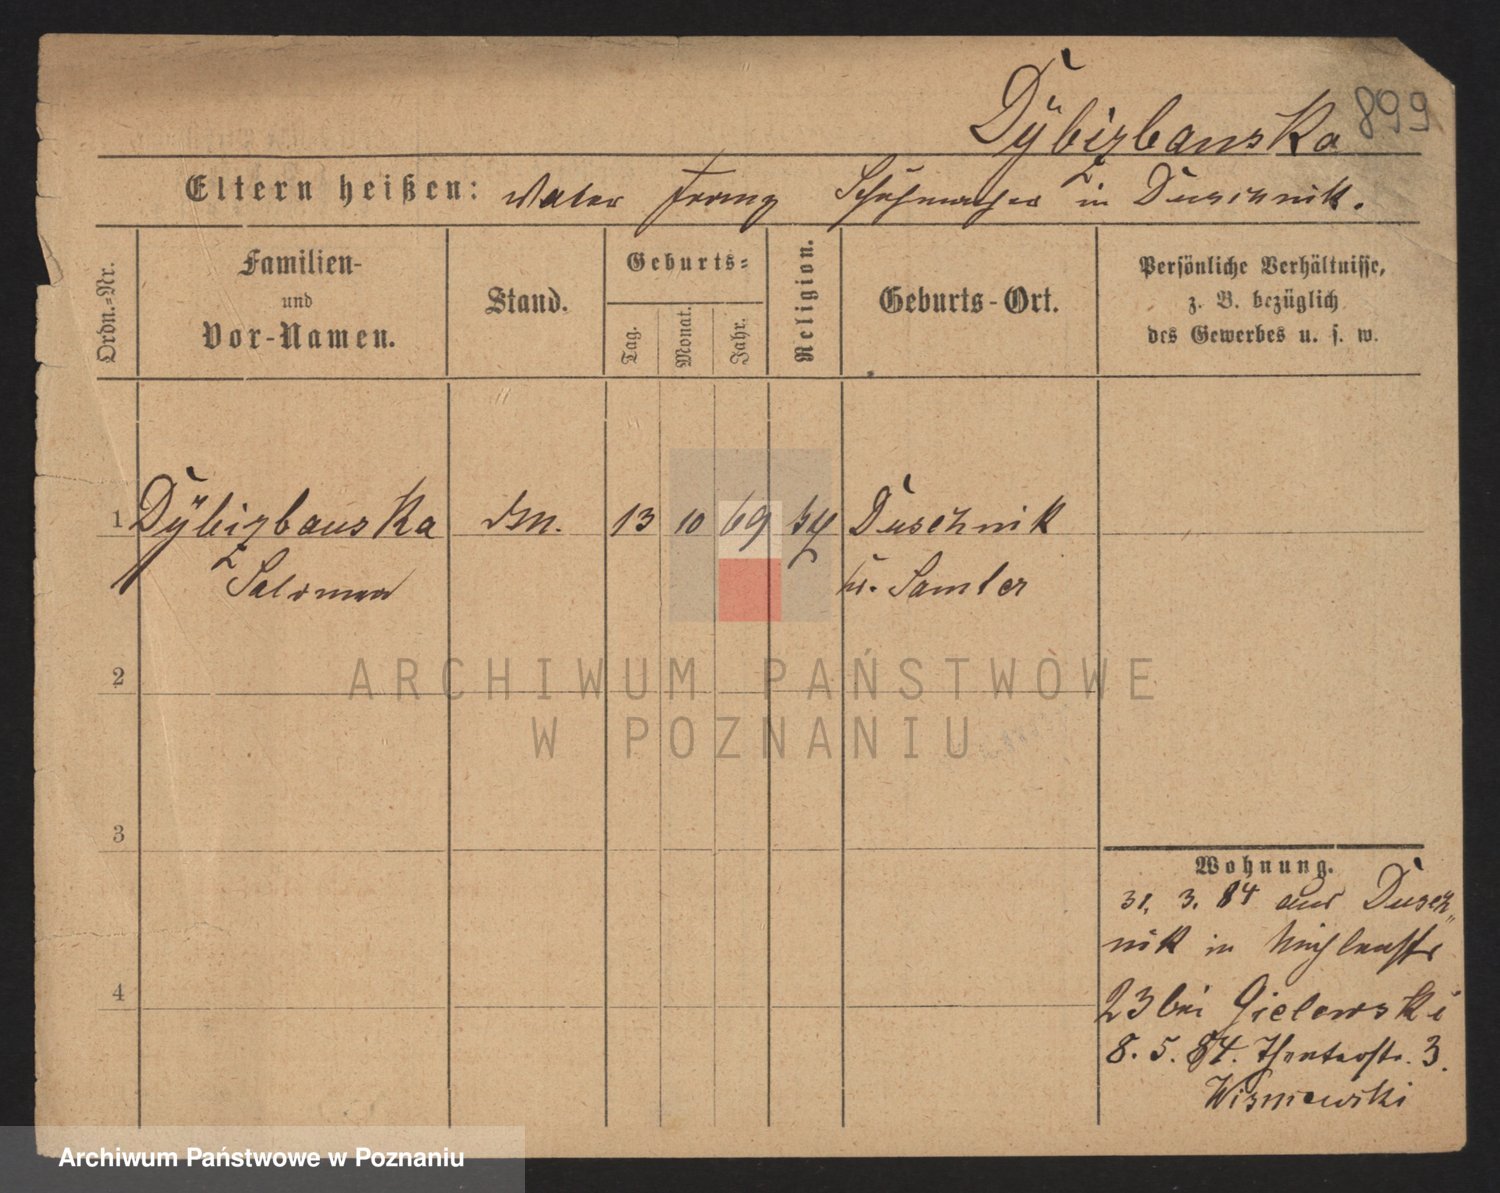 Dÿbizbanska 899
Eltern heißen: Vater Franz Schuhmacher in Dusznik.
Ordn.-Nr.
Familien-
und
Vor-Namen.
Stand.
Geburts-
Tag.
Monat.
Jahr.
Religion.
Geburts-Ort.
Persönliche Verhältnisse,
z. B. bezüglich
des Gewerbes u. s. w.
1 Dÿbizbanska 13 10 69 Dusznik
Salomea Kr. Samter
2
3
4
Wohnung.
31. 3. 84 aus Dusz„
nik in Mühlenstr
23 bei Gielewski
8. 5. 84. Theaterstr. 3.
Wisniewski
ARCHIWUM PAŃSTWÒWE
W POZNANIU
Archiwum Państwowe w Poznaniu